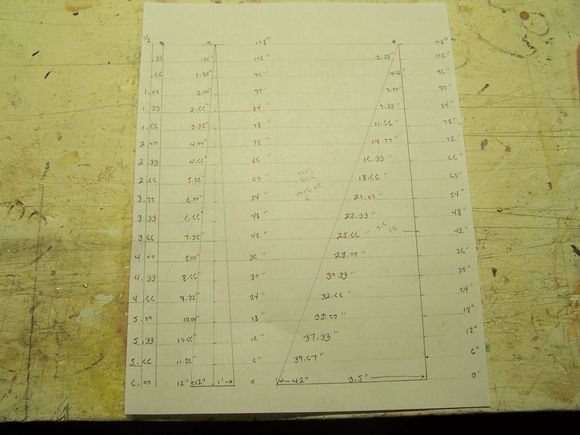 1/2 0 0 108" 0 108"
.33 .66" 102" 2.33" 102"
.66 1.32" 96" 4.66" 96"
1.00 2.00" 90" 7.00" 90"
1.33 2.66" 84" 9.33" 84"
1.66 3.32" 78" 11.66" 78"
2.00 4.00" 72" 14.00" 72"
2.33 4.66" 66" 16.33" 66"
2.66 5.32" 60" 18.66" 60"
3.00 6.00" 54" 21.00" 54"
3.33 6.66" 48" 23.33" 48"
3.66 7.32" 42" 25.66" 42"
4.00 8.00" 36" 28.00" 36"
4.33 8.66" 30" 30.33" 30"
4.66 9.32" 24" 32.66" 24"
5.00 10.00" 18" 35.00" 18"
5.33 10.66" 12" 37.33" 12"
5.66 11.32" 6" 39.67" 6"
6.00 12" 12" 1' 0 42" 3.5' 0"